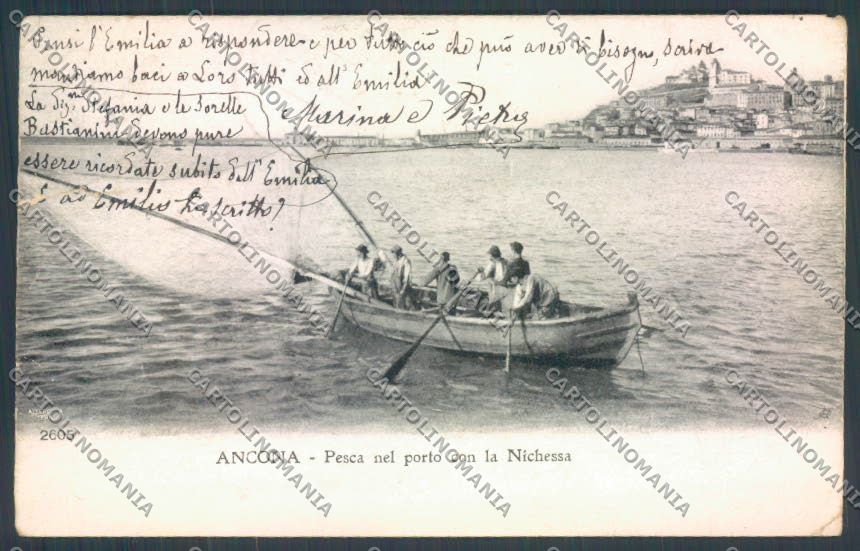 Pensi l'Emilia a rispondere e per tutto ciò che può aver di bisogno, scriva
mandiamo baci a Loro tutti ed all'Emilia
Marina e Pietro
La Sig.na Stefania e le Sorelle
Bastianini devono pure
essere ricordate subito dall'Emilia
E ad Emilio ha scritto?
2605
ANCONA - Pesca nel porto con la Nichessa
CARTOLINOMANIA